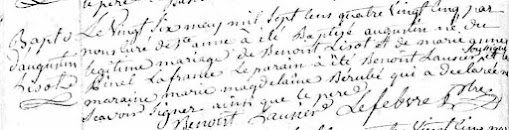 Bapt.
d'augustin
Lisot
Le Vingt Six may mil Sept Cens quatre Vingt Cinq par
nous curé de Ste anne à été Baptisé augustin né du
legitime mariage de Benoit Lisot et de marie anne
Pinel Lafrance Le parain à été Benoit Lausier et la
maraine marie magdelaine Bérubé qui a declarée ne
Scavoir Signer ainsi que le pere
Benoit Lausier Lefebvre ptre